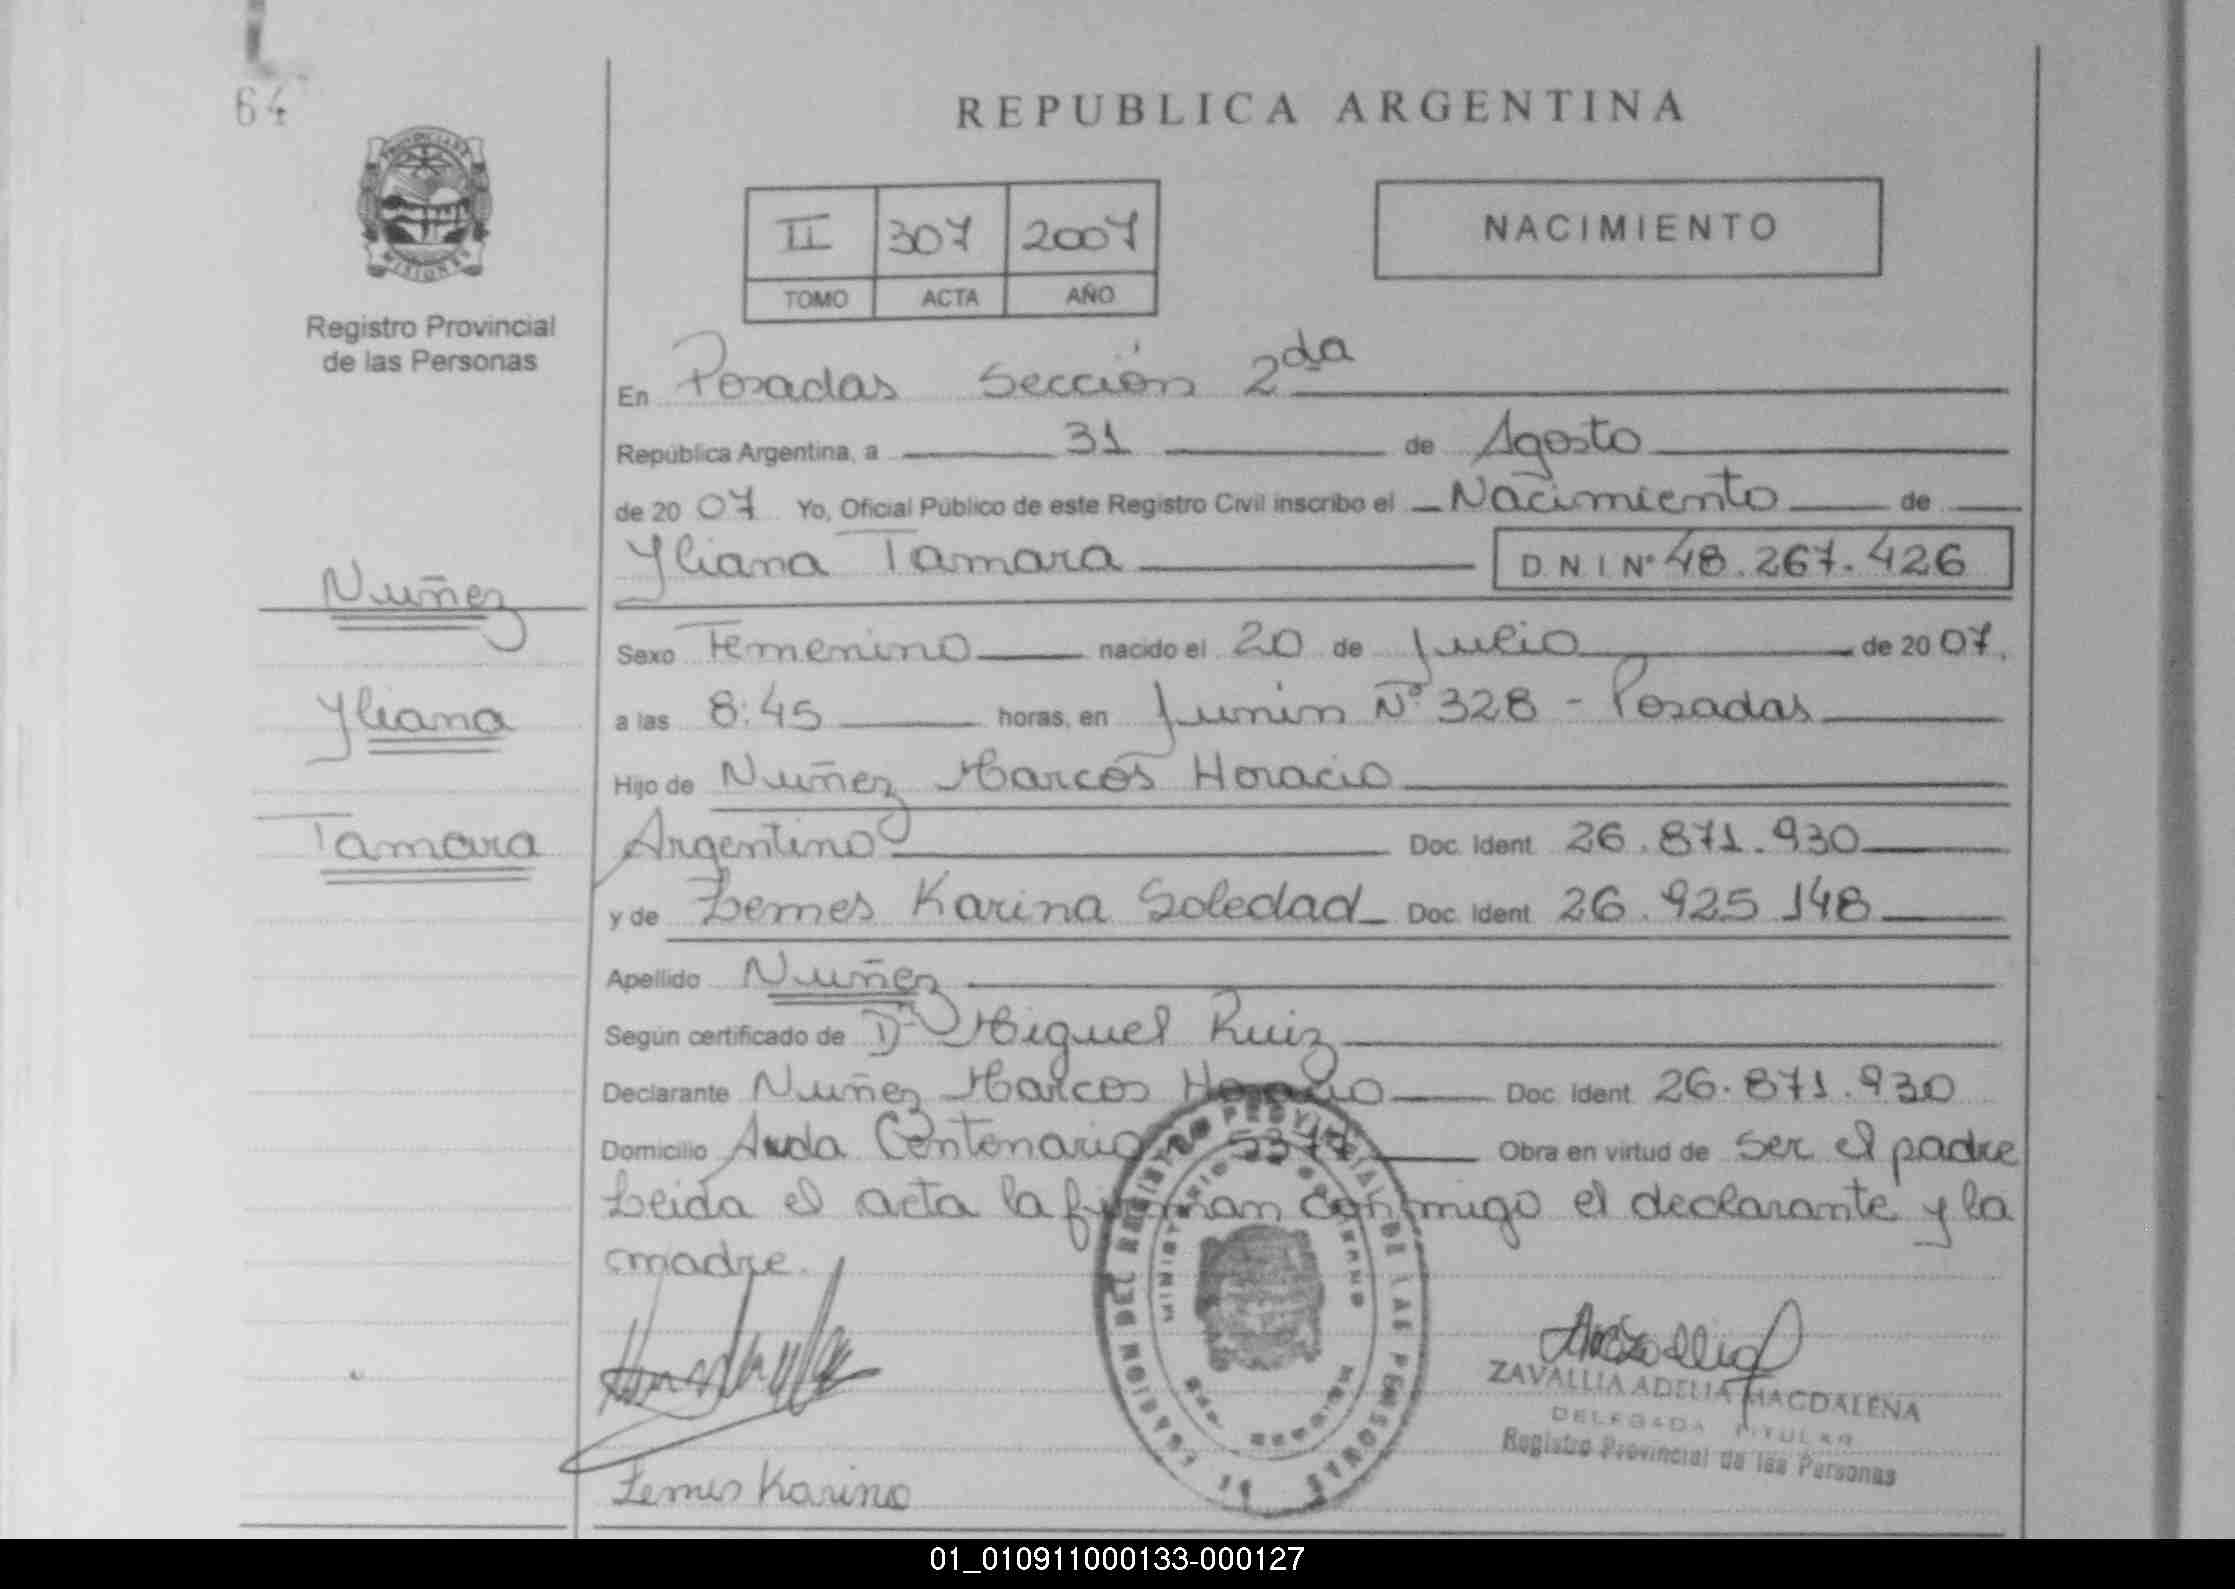 64
REPUBLICA ARGENTINA
PROVINCIA DE
MISIONES
Registro Provincial
de las Personas
II 307 2007
TOMO ACTA AÑO
NACIMIENTO
En Posadas Sección 2da
República Argentina, a 31 de Agosto
de 2007 Yo, Oficial Público de este Registro Civil inscribo el Nacimiento de
Yliana Tamara D.N.I Nº 48.267.426
Nuñez
Yliana
Tamara
Sexo Femenino nacido el 20 de Julio de 2007.
a las 8:45 horas, en Junin Nº 328 - Posadas
Hijo de Nuñez Marcos Horacio
Argentino Doc. Ident. 26.871.930
y de Lemes Karina Soledad Doc. Ident. 26.925.148
Apellido Nuñez
Según certificado de Dr Miguel Ruiz
Declarante Nuñez Marcos Horacio Doc. Ident. 26.871.930
Domicilio Avda Centenario 5377 Obra en virtud de ser el padre
Leida el acta la firman conmigo el declarante y la
madre.
Lemes Karina
ZAVALLIA ADELIA MAGDALENA
DELEGADA TITULAR
Registro Provincial de las Personas
DEL REGISTRO PROVINCIAL DE LAS PERSONAS
MINISTERIO DE GOBIERNO
MISIONES
01_010911000133-000127